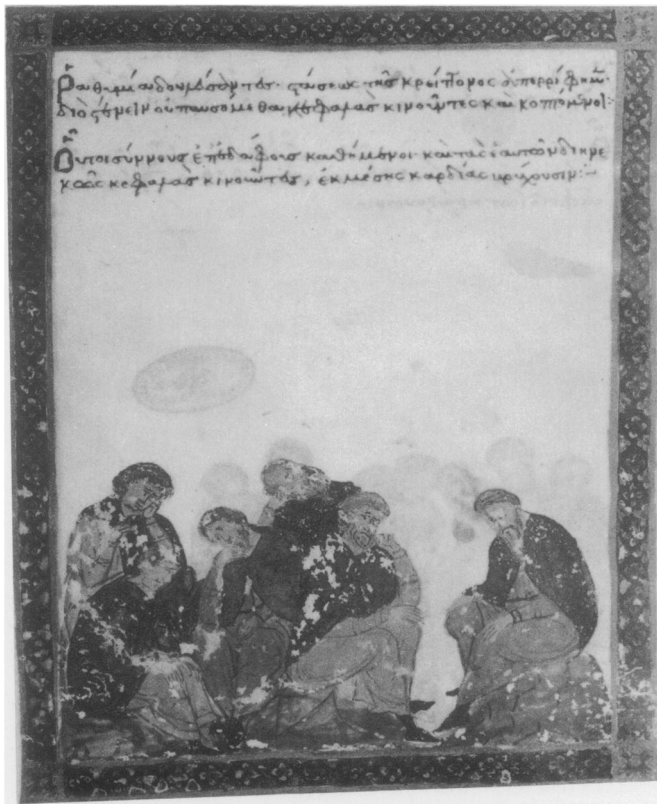 Ῥαθυμία στάσεως τῆς κρείττονος ἀπερρίφημεν·
διὸ στένειν οὐ παυσόμεθα κεφαλὰς κινοῦντες καὶ κοπτόμενοι:
Οὗτοι σύννους ἐπ' ἐδάφους καθήμενοι καὶ τὰς ἑαυτῶν διηνε
κῶς κεφαλὰς κινοῦντες, ἐκ μέσης καρδίας βρύχουσιν: